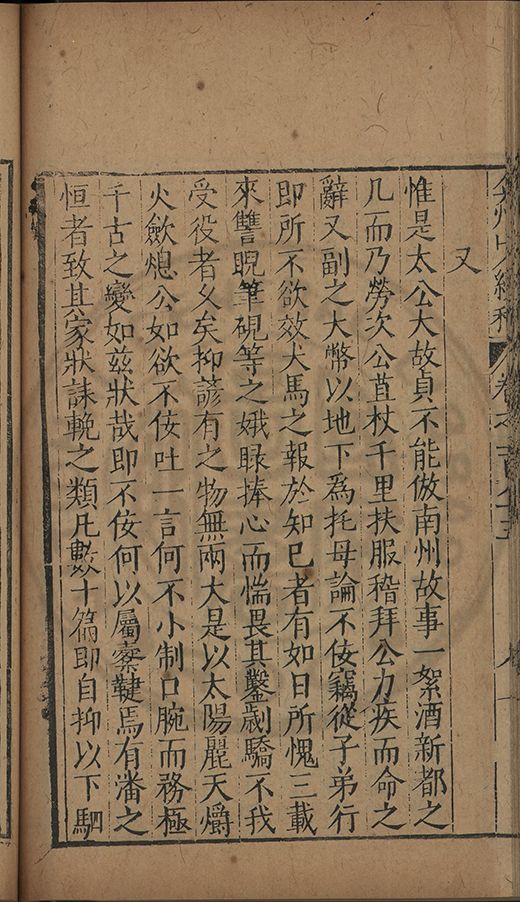 又
惟是太公大故貞不能倣南州故事一絮酒新都之
几而乃勞次公苴杖千里扶服稽拜公力疾而命之
辭又副之大幣以地下爲托毋論不佞竊從子弟行
即所不欲效犬馬之報於知已者有如日所愧三載
來讐睨筆硯等之娥眿捧心而惴畏其鑿劌驕不我
受役者乆矣抑諺有之物無兩大是以太陽麗天爝
火歛熄公如欲不佞吐一言何不小制口腕而務極
千古之變如兹狀哉即不佞何以屬櫜鞬焉有潘之
恒者致其家狀誄輓之類凡數十篇即自抑以下駟